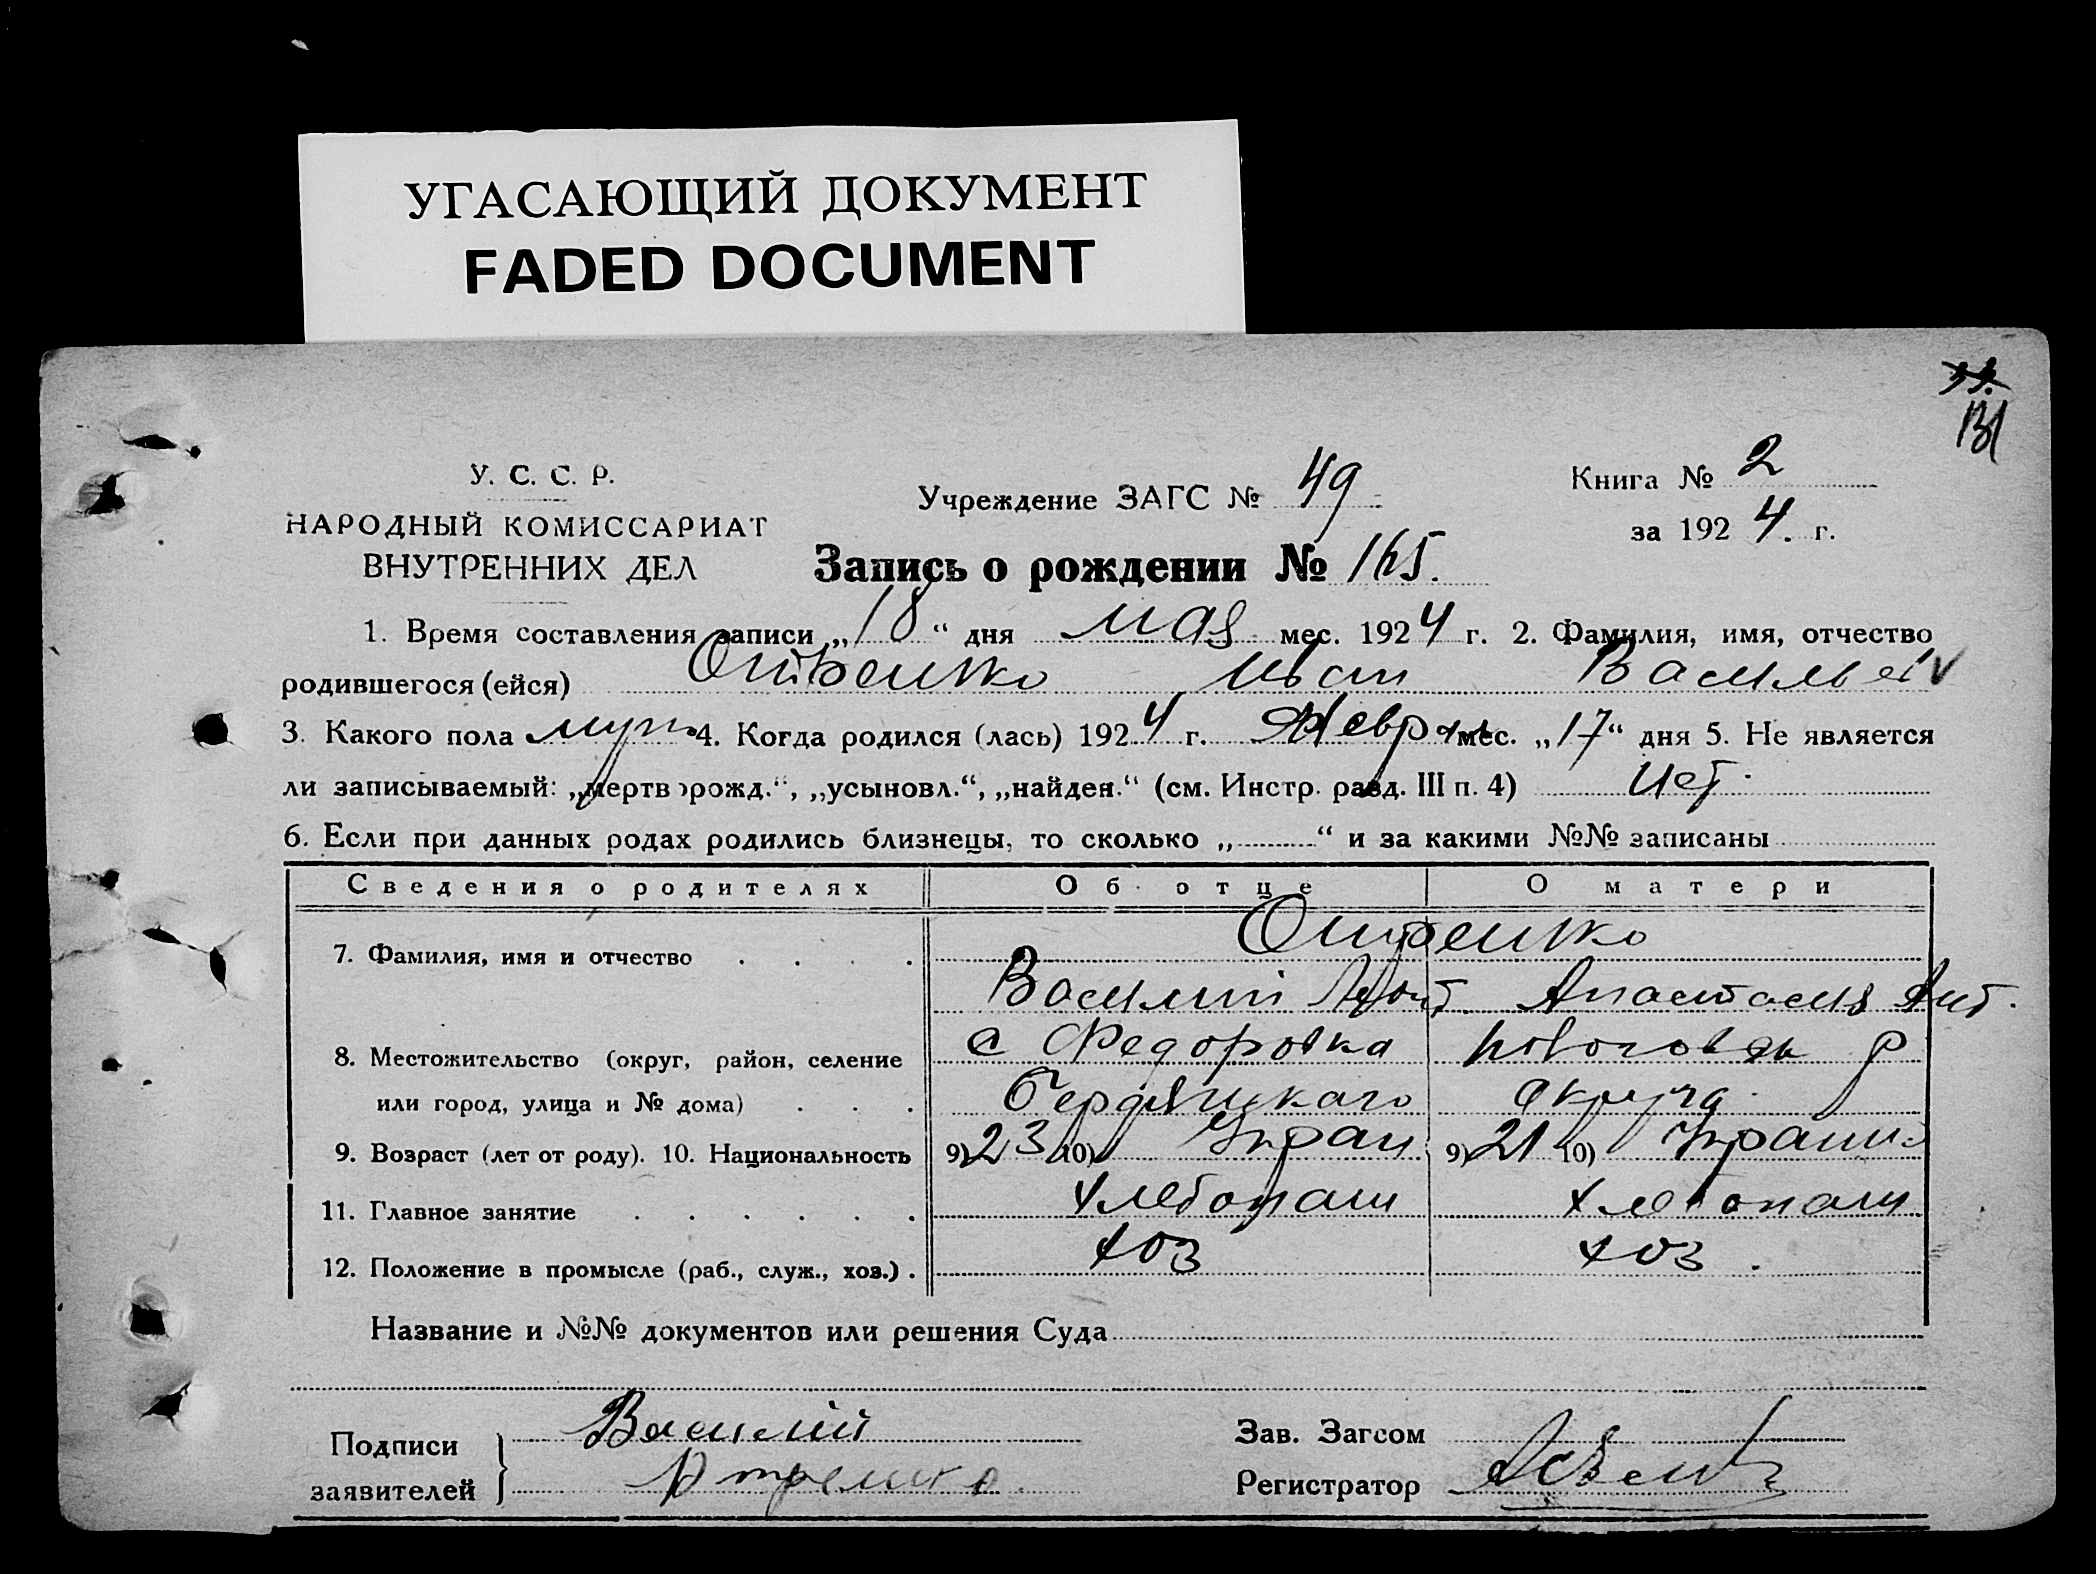 УГАСАЮЩИЙ ДОКУМЕНТ
FADED DOCUMENT
131
У. С. С. Р.
НАРОДНЫЙ КОМИССАРИАТ
ВНУТРЕННИХ ДЕЛ
Учреждение ЗАГС № 49
Книга № 2
за 1924. г.
Запись о рождении № 165.
1. Время составления записи „18“ дня мая мес. 1924 г. 2. Фамилия, имя, отчество
родившегося (ейся) Отренко Иван Васильев
3. Какого пола муж. 4. Когда родился (лась) 1924 г. Февраля мес. „17“ дня 5. Не является
ли записываемый: „мертворожд.“, „усыновл.“, „найден.“ (см. Инстр. разд. III п. 4) нет.
6. Если при данных родах родились близнецы, то сколько „ “ и за какими №№ записаны
Сведения о родителях Об отце О матери
7. Фамилия, имя и отчество . . . . Отренко
Василий Анастасия Ант.
8. Местожительство (округ, район, селение с Федоровка р
или город, улица и № дома) . . . Бердянскаго округа.
9. Возраст (лет от роду). 10. Национальность 9) 23 10) Украи 9) 21 10) Украин
11. Главное занятие . . . . . . хлебопаш хлебопаш
12. Положение в промысле (раб., служ., хоз.) . хоз хоз.
Название и №№ документов или решения Суда
Подписи
заявителей
Василий
Отренко
Зав. Загсом
Регистратор